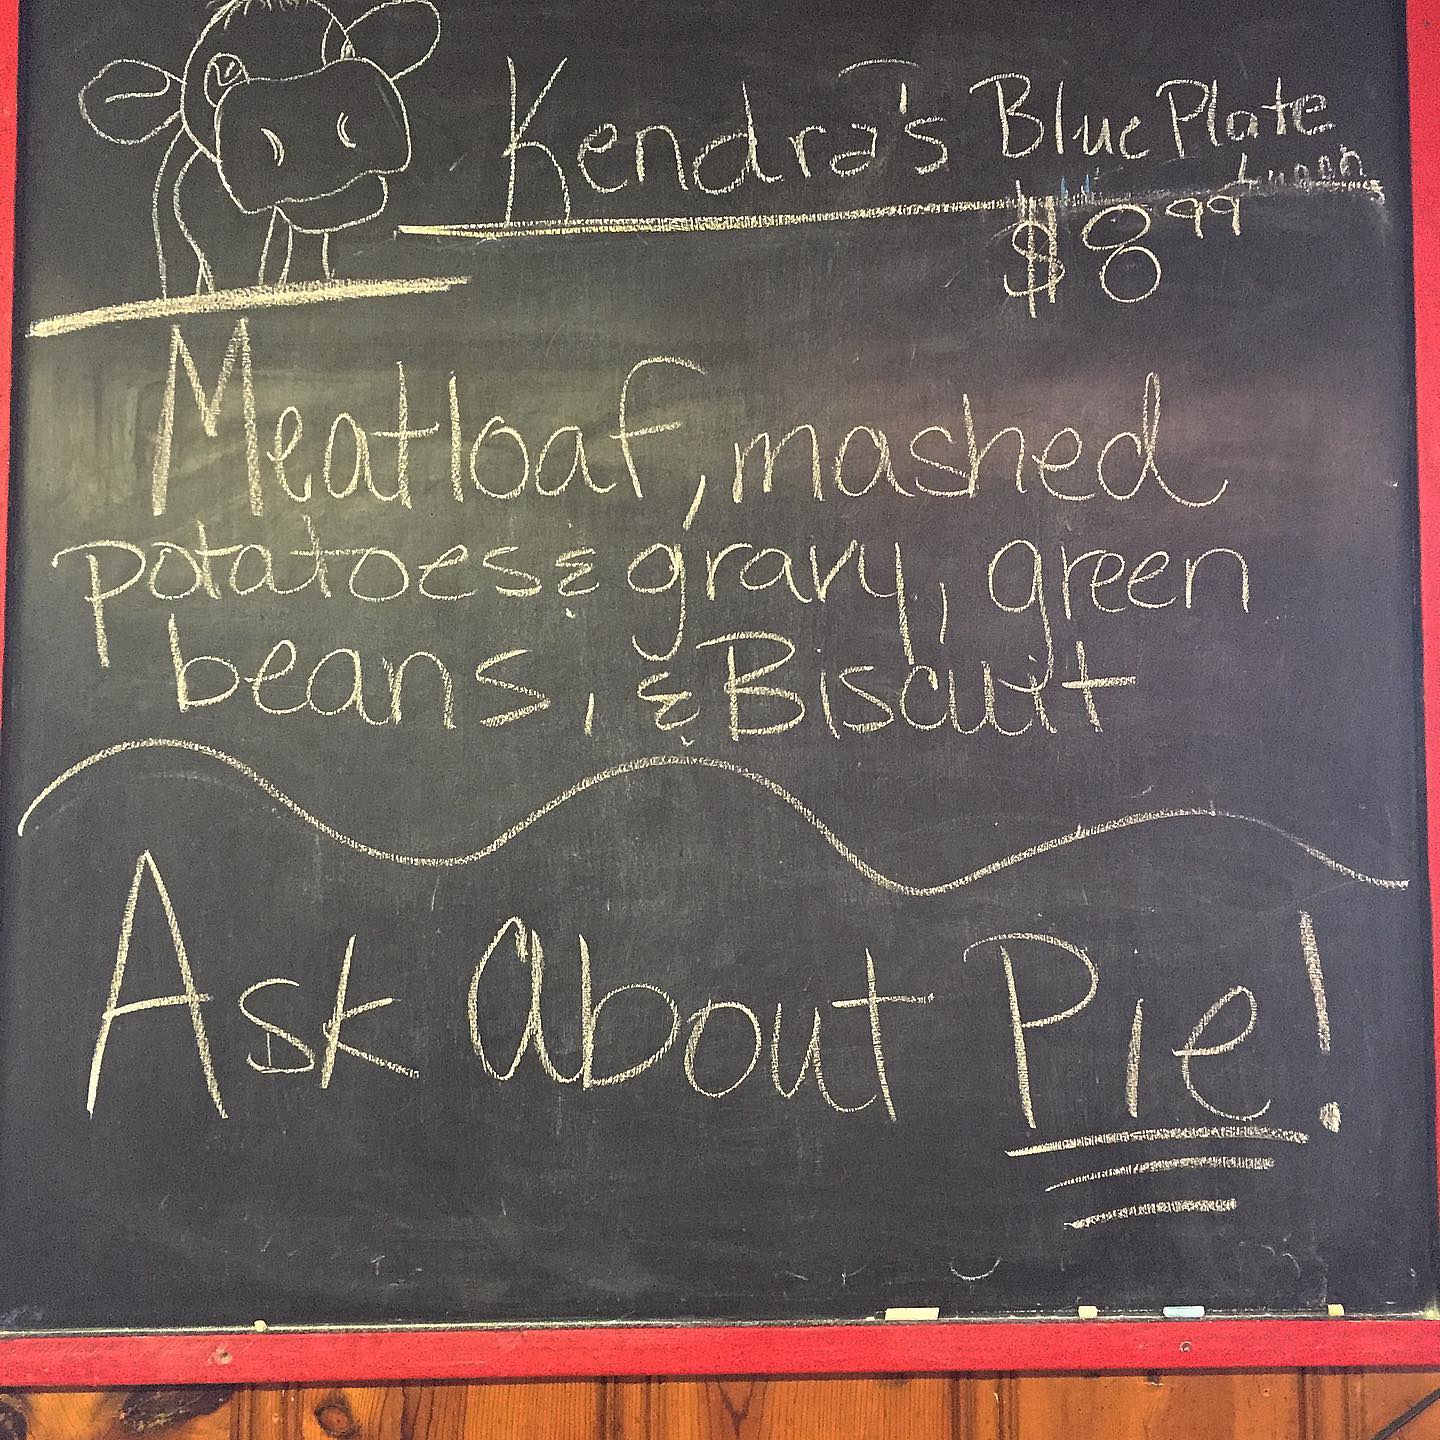 Kendra's Blue Plate
Lunch
$8.99
Meatloaf, mashed
potatoes & gravy, green
beans, & Biscuit
Ask About Pie!